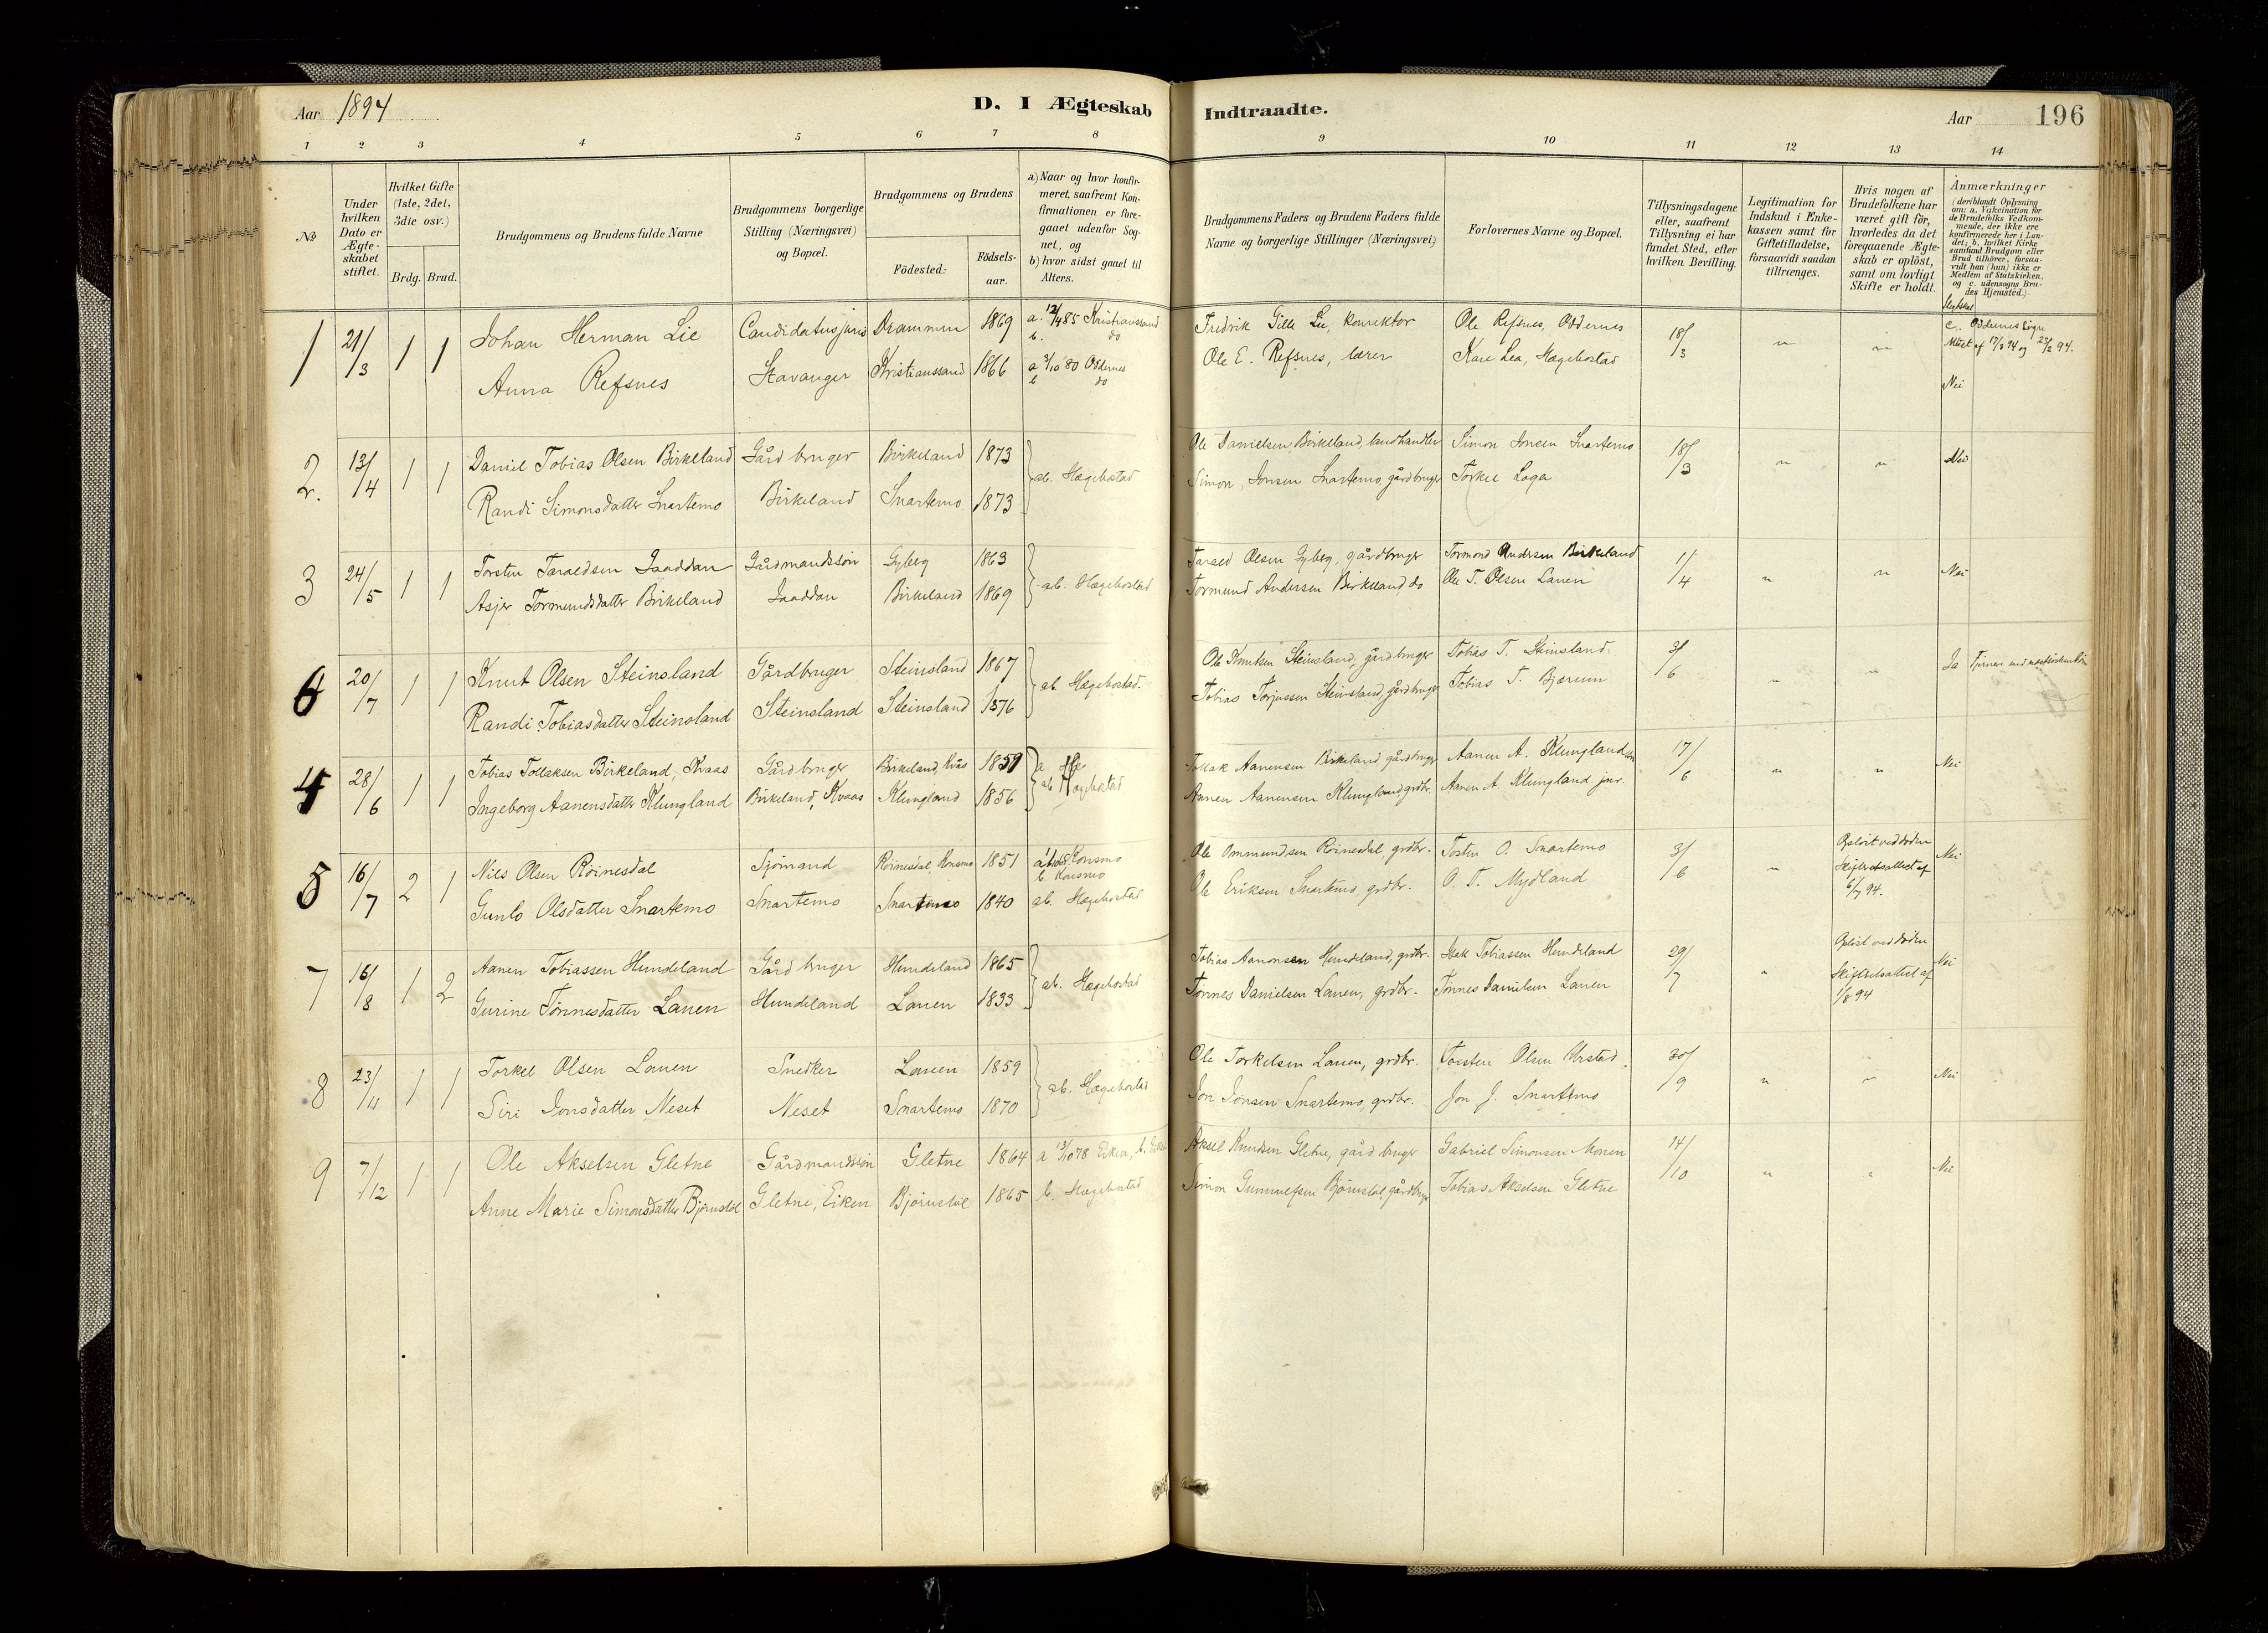 Aar 1894
D. I Ægteskab Indtraadte.
Aar 196
1 2 3 4 5 6 7 8 9 10 11 12 13 14
№
Under hvilken Dato er Ægteskabet stiftet.
Hvilket Gifte (1ste, 2det, 3die osv.)
Brdg. Brud.
Brudgommens og Brudens fulde Navne
Brudgommens borgerlige Stilling (Næringsvei) og Bopæl.
Brudgommens og Brudens
Födested:
Födselsaar.
a) Naar og hvor konfirmeret, saafremt Konfirmationen er foregaaet udenfor Sognet, og
b) hvor sidst gaaet til Alters.
Brudgommens Faders og Brudens Faders fulde Navne og borgerlige Stillinger (Næringsvei)
Forlovernes Navne og Bopæl.
Tillysningsdagene eller, saafremt Tillysning ei har fundet Sted, efter hvilken Bevilling.
Legitimation for Indskud i Enkekassen samt for Giftetilladelse, forsaavidt saadan tiltrænges.
Hvis nogen af Brudefolkene har været gift för, hvorledes da det foregaaende Ægteskab er oplöst, samt om lovligt Skifte er holdt.
Anmærkninger (deriblandt Oplysning om: a. Vakcination for de Brudefolks Vedkommende, der ikke ere konfirmerede her i Landet; b. hvilket Kirkesamfund Brudgom eller Brud tilhörer, forsaavidt han (hun) ikke er Medlem af Statskirken, og c. udensogns Brudes Hjemsted.)
1 21/3 1 1 Johan Herman Lie Candidatus juris Drammen 1869 a. 12/4 85 Kristianssand Fredrik Gill Lie, konrektor Ole Refsnes, Oddernes 18/3 " " c. Oddernes Sogn
b. do
Anna Refsnes Stavanger Kristianssand 1866 a 3/10 80 Oddernes Ole E. Refsnes, lærer Kare Lea, Hægebostad
b do Nei
2. 13/4 1 1 Daniel Tobias Olsen Birkeland Gårdbruger Birkeland 1873 ab. Hægebostad Ole Danielsen Birkeland, landhandler Simon Jonsen Snartemo 18/3 " " Nei
Randi Simonsdatter Snartemo Birkeland Snartemo 1873 Simon Jonsen Snartemo, gårdbruger Torkel Laga
3 24/5 1 1 Torsten Taraldsen Jaaddan Gårdmandssön Gyberg 1863 ab. Hægebostad Tarald Olsen Gyberg, gårdbruger Tormond Andersen Birkeland 1/4 " " Nei
Asjer Tormundsdatter Birkeland Jaaddan Birkeland 1869 Tormund Andersen Birkeland, do Ole T. Olsen Lauen
6 20/7 1 1 Knut Olsen Steinsland Gårdbruger Steinsland 1867 ab. Hægebostad. Ole Knutsen Steinsland, gårdbruger Tobias T. Steinsland 3/6 " " Ja
Randi Tobiasdatter Steinsland Steinsland Steinsland 1876 Tobias Torjussen Steinsland, gårdbruger Tobias T. Bjærum
4 28/6 1 1 Tobias Tollaksen Birkeland, Kvaas Gårdbruger Birkeland, Kvås 1859 ab Hægebostad Tollak Aanensen Birkeland gårdbruger Aanen A. Klungland 17/6 " " Nei
Ingeborg Aanensdatter Klungland Birkeland, Kvaas Klungland 1856 Aanen Aanensen Klungland grdbr. Aanen A. Klungland jnr.
5 16/7 2 1 Nils Olsen Röinesdal Sjömand Röinesdal, Konsmo 1851 Konsmo Ole Ommundsen Röinesdal, grdbr. Tosten O. Snartemo 3/6 " Oplöst ved döden Nei
b. Konsmo Skifteretsattest af
Gunlö Olsdatter Snartemo Snartemo Snartemo 1840 ab. Hægebostad Ole Eriksen Snartemo, grdbr. O. T. Mydland 6/7 94.
7 16/8 1 2 Aanen Tobiassen Hundeland Gårdbruger Hundeland 1865 ab. Hægebostad Tobias Aanonsen Hundeland, grdbr. Isak Tobiassen Hundeland 29/7 " Oplöst ved döden Nei
Skifteretsattest af
Gurine Tönnesdatter Lauen Hundeland Lauen 1833 Tönnes Danielsen Lauen, grdbr. Tönnes Danielsen Lauen 1/8 94
8 23/11 1 1 Torkel Olsen Lauen Snedker Lauen 1859 ab. Hægebostad Ole Torkelsen Lauen, grdbr. Torsten Olsen Urstad 30/9 " " Nei
Siri Jonsdatter Neset Neset Snartemo 1870 Jon Jonsen Snartemo, grdbr. Jon J. Snartemo
9 7/12 1 1 Ole Akselsen Gletne Gårdmandssön Gletne 1864 a 13/10 78 Eiken, b. Eiken Aksel Knudsen Gletne, gårdbruger Gabriel Simonsen Monen 14/10 " " Nei
Anne Marie Simonsdatter Björnstöl Gletne, Eiken Björnstöl 1865 b. Hægebostad Simon Gunnulfsen Björnstöl, gårdbruger Tobias Akselsen Gletne